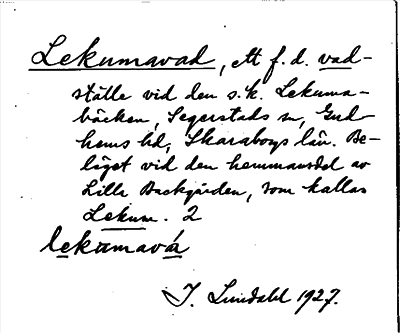 Lekumavad, ett f.d. vad-
ställe vid den s.k. Lekuma-
bäcken, Segerstads sn, Gud-
hems hd, Skaraborgs län. Be-
läget vid den hemmansdel av
Lilla Backgården, som kallas
Lekum. 2
lekumavá
J. Lindahl 1927.